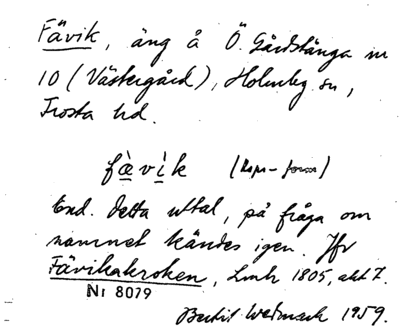 Fävik, äng å Ö. Gårdstånga nr
10 (Västergård), Holmby sn,
Frosta hd.
fàvìk (Rspr-form)
End. detta uttal, på fråga om
namnet kändes igen. Jfr
Fävikakroken, Lmk 1805, akt 7.
Nr 8079
Bertil Wedmark 1959.